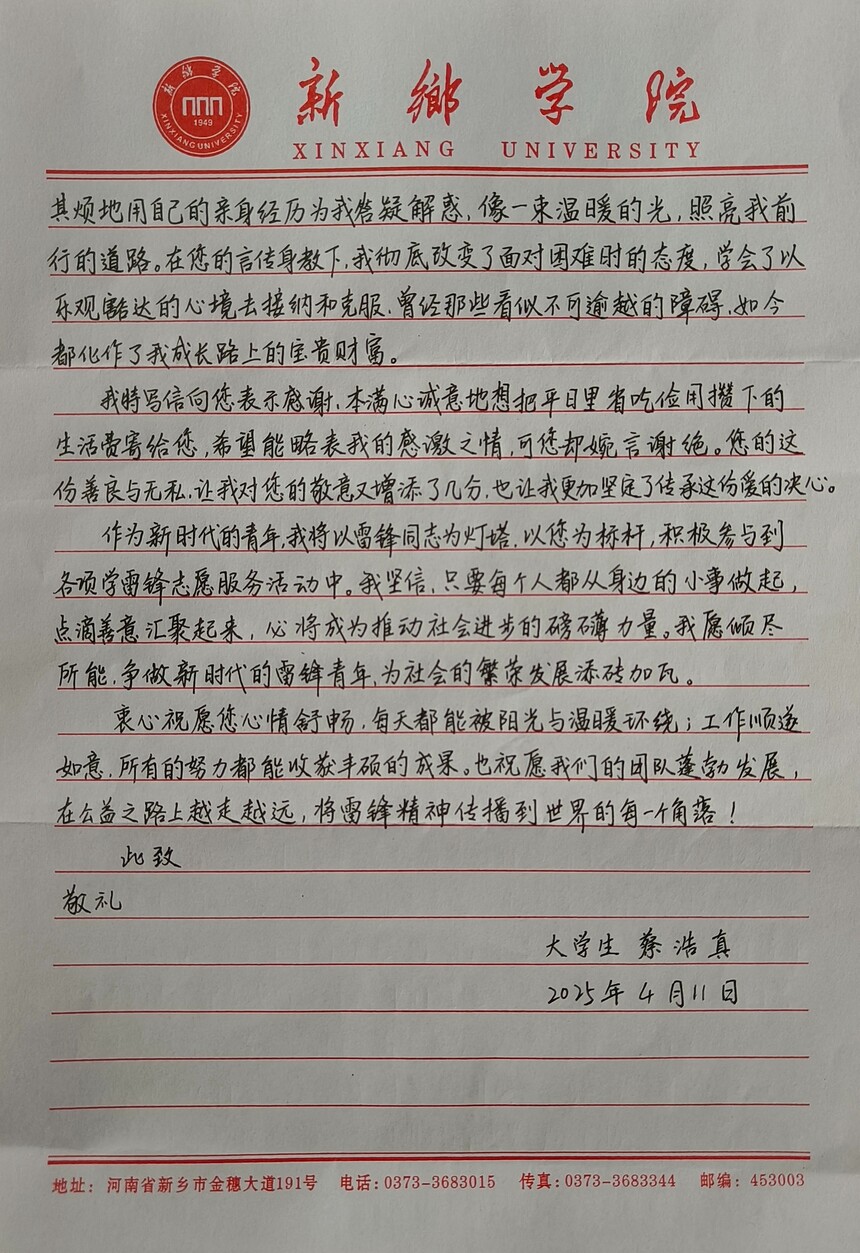 新鄉学院
XINXIANG UNIVERSITY
新鄉学院
1949
XINXIANG UNIVERSITY
其烦地用自己的亲身经历为我答疑解惑，像一束温暖的光，照亮我前
行的道路。在您的言传身教下，我彻底改变了面对困难时的态度，学会了以
乐观豁达的心境去接纳和克服，曾经那些看似不可逾越的障碍，如今
都化作了我成长路上的宝贵财富。
我特写信向您表示感谢，本满心诚意地想把平日里省吃俭用攒下的
生活费寄给您，希望能略表我的感激之情，可您却婉言谢绝。您的这
份善良与无私，让我对您的敬意又增添了几分，也让我更加坚定了传承这份爱的决心。
作为新时代的青年，我将以雷锋同志为灯塔，以您为标杆，积极参与到
各项学雷锋志愿服务活动中。我坚信，只要每个人都从身边的小事做起，
点滴善意汇聚起来，必将成为推动社会进步的磅礴力量。我愿倾尽
所能，争做新时代的雷锋青年，为社会的繁荣发展添砖加瓦。
衷心祝愿您心情舒畅，每天都能被阳光与温暖环绕；工作顺遂
如意，所有的努力都能收获丰硕的成果。也祝愿我们的团队蓬勃发展，
在公益之路上越走越远，将雷锋精神传播到世界的每一个角落！
此致
敬礼
大学生 蔡浩真
2025年4月11日
地址：河南省新乡市金穗大道191号 电话：0373-3683015 传真：0373-3683344 邮编：453003